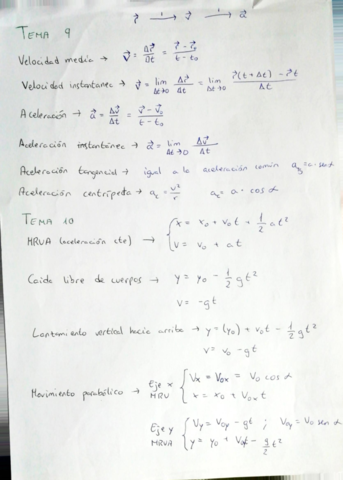 r⃗ → v⃗ → a⃗
TEMA 9
Velocidad media → v⃗ = Δr⃗/Δt = (r⃗ - r⃗₀)/(t - t₀)
Velocidad instantanea → v⃗ = lim Δt→0 Δr⃗/Δt = lim Δt→0 (r⃗(t + Δt) - r⃗t)/Δt
Aceleración → a⃗ = Δv⃗/Δt = (v⃗ - v⃗₀)/(t - t₀)
Aceleración instantánea → a⃗ = lim Δt→0 Δv⃗/Δt
Aceleración tangencial → igual a la aceleración común a = a · sen α
Aceleración centrípeta → a = v²/r a = a · cos α
TEMA 10
MRVA (aceleración cte) → { x = x₀ + v₀t + 1/2 at²
v = v₀ + at
Caida libre de cuerpos → y = y₀ - 1/2 gt²
v = -gt
Lanzamiento vertical hacia arriba → y = (y₀) + v₀t - 1/2 gt²
v = v₀ - gt
Movimiento parabólico → Eje x MRU { Vx = V₀x = V₀ cos α
x = x₀ + V₀x t
Eje y MRVA { Vy = V₀y - gt ; V₀y = V₀ sen α
y = y₀ + V₀t - g/2 t²